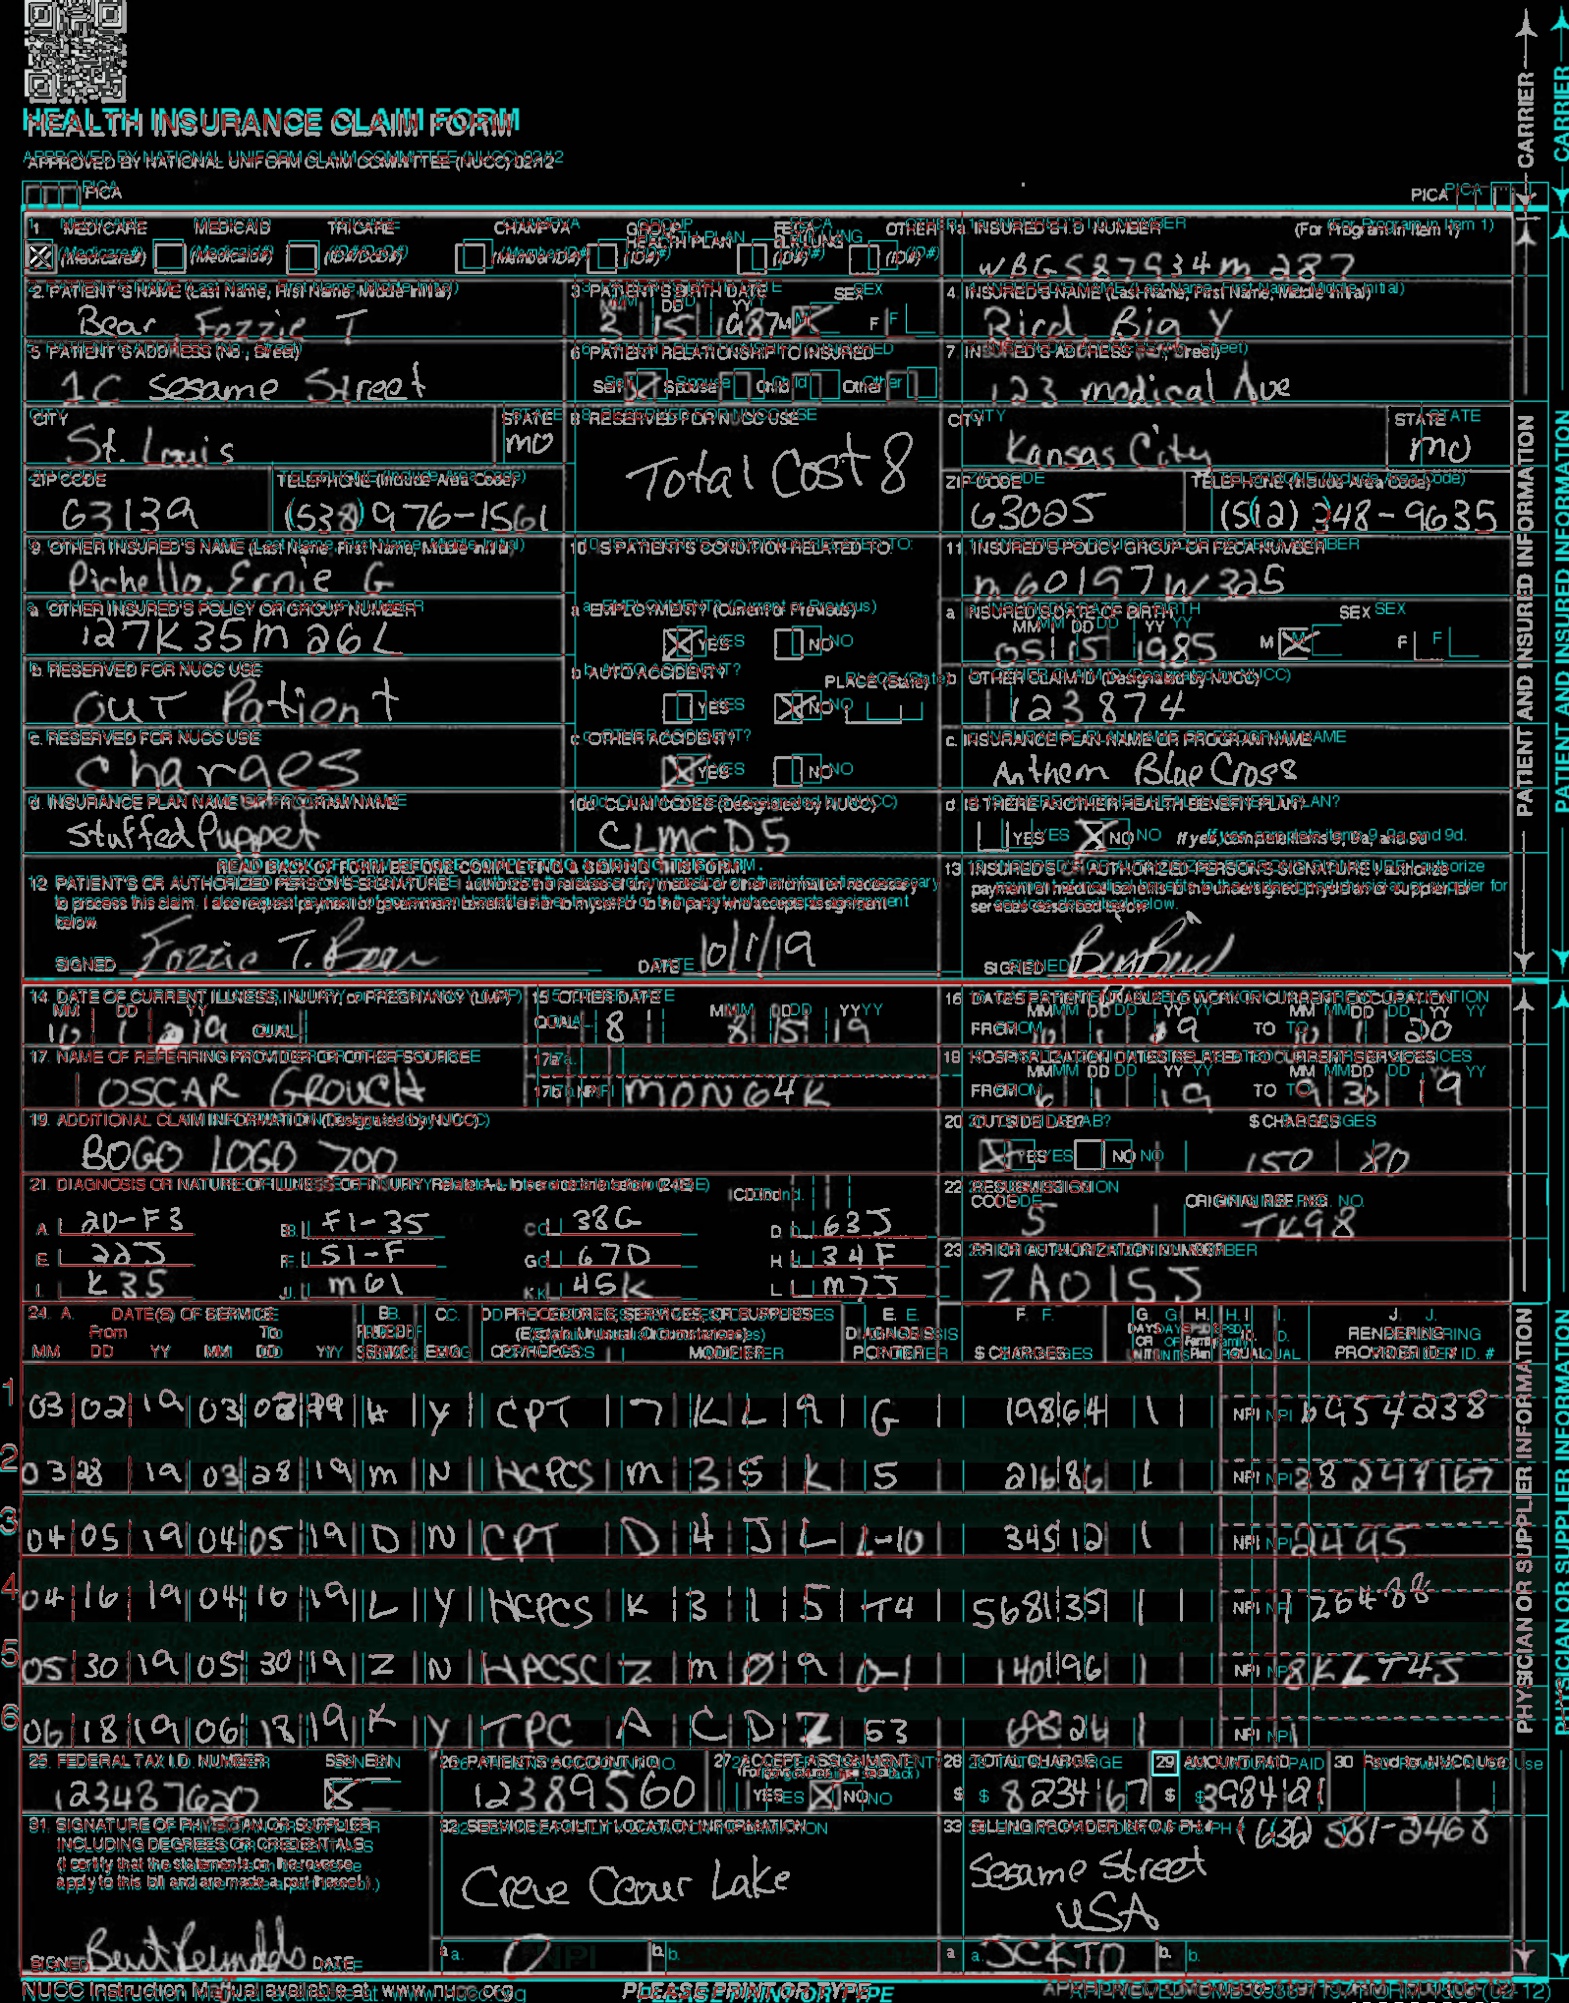 HEALTH INSURANCE CLAIM FORM
APPROVED BY NATIONAL UNIFORM CLAIM COMMITTEE (NUCC) 02/12
PICA PICA
CARRIER
1. MEDICARE MEDICAID TRICARE CHAMPVA GROUP HEALTH PLAN FECA BLK LUNG OTHER
(Medicare#) (Medicaid#) (ID#/DoD#) (Member ID#) (ID#) (ID#) (ID#)
1a. INSURED'S I.D. NUMBER (For Program in Item 1)
2. PATIENT'S NAME (Last Name, First Name, Middle Initial)
Bear, Fozzie T
3. PATIENT'S BIRTH DATE SEX
MM DD YY
3 15 1987 M X F
4. INSURED'S NAME (Last Name, First Name, Middle Initial)
Bird, Big Y
5. PATIENT'S ADDRESS (No., Street)
1C Sesame Street
6. PATIENT RELATIONSHIP TO INSURED
Self X Spouse Child Other
7. INSURED'S ADDRESS (No., Street)
123 medical Ave
CITY
St. Louis
STATE
MO
8. RESERVED FOR NUCC USE
Total Cost 8
CITY
Kansas City
STATE
MO
ZIP CODE
63139
TELEPHONE (Include Area Code)
(538) 976-1561
ZIP CODE
63025
TELEPHONE (Include Area Code)
(512) 348-9635
9. OTHER INSURED'S NAME (Last Name, First Name, Middle Initial)
Pichello, Ernie G
10. IS PATIENT'S CONDITION RELATED TO:
11. INSURED'S POLICY GROUP OR FECA NUMBER
M60197W325
a. OTHER INSURED'S POLICY OR GROUP NUMBER
127K35M26L
a. EMPLOYMENT? (Current or Previous)
X YES NO
a. INSURED'S DATE OF BIRTH SEX
MM DD YY
05 15 1985 M X F
b. RESERVED FOR NUCC USE
OUT Patient
b. AUTO ACCIDENT? PLACE (State)
YES X NO
b. OTHER CLAIM ID (Designated by NUCC)
123874
c. RESERVED FOR NUCC USE
Charges
c. OTHER ACCIDENT?
X YES NO
c. INSURANCE PLAN NAME OR PROGRAM NAME
Anthem Blue Cross
d. INSURANCE PLAN NAME OR PROGRAM NAME
Stuffed Puppet
10d. CLAIM CODES (Designated by NUCC)
CLMCD5
d. IS THERE ANOTHER HEALTH BENEFIT PLAN?
YES X NO If yes, complete items 9, 9a, and 9d.
READ BACK OF FORM BEFORE COMPLETING & SIGNING THIS FORM.
12. PATIENT'S OR AUTHORIZED PERSON'S SIGNATURE I authorize the release of any medical or other information necessary
to process this claim. I also request payment of government benefits either to myself or to the party who accepts assignment
below.
SIGNED Fozzie T. Bear DATE 10/1/19
13. INSURED'S OR AUTHORIZED PERSON'S SIGNATURE I authorize
payment of medical benefits to the undersigned physician or supplier for
services described below.
SIGNED Big Bird
PATIENT AND INSURED INFORMATION
14. DATE OF CURRENT ILLNESS, INJURY, or PREGNANCY (LMP)
MM DD YY
10 1 19 QUAL.
15. OTHER DATE
QUAL. 8 MM DD YY
8 15 19
16. DATES PATIENT UNABLE TO WORK IN CURRENT OCCUPATION
MM DD YY MM DD YY
FROM TO
17. NAME OF REFERRING PROVIDER OR OTHER SOURCE
OSCAR GROUCH
17a.
17b. NPI MON64K
18. HOSPITALIZATION DATES RELATED TO CURRENT SERVICES
MM DD YY MM DD YY
FROM 6 1 19 TO 9 30 19
19. ADDITIONAL CLAIM INFORMATION (Designated by NUCC)
BOGO LOGO ZOO
20. OUTSIDE LAB? $ CHARGES
X YES NO 150 80
21. DIAGNOSIS OR NATURE OF ILLNESS OR INJURY Relate A-L to service line below (24E) ICD Ind.
A. 2D-F3 B. F1-35 C. 38G D. 63J
E. 22J F. S1-F G. 67D H. 34F
I. K35 J. M61 K. 45K L. M7J
22. RESUBMISSION
CODE ORIGINAL REF. NO.
5 TK98
23. PRIOR AUTHORIZATION NUMBER
ZA015J
24. A. DATE(S) OF SERVICE B. C. D. PROCEDURES, SERVICES, OR SUPPLIES E. F. G. H. I. J.
From To PLACE OF (Explain Unusual Circumstances) DIAGNOSIS DAYS OR EPSDT ID. RENDERING
MM DD YY MM DD YY SERVICE EMG CPT/HCPCS MODIFIER POINTER $ CHARGES UNITS Family Plan QUAL. PROVIDER ID. #
1 03 02 19 03 Y CPT 7 K L 9 G 198 64 1 NPI
2 03 28 19 03 28 19 M N HCPCS M 3 5 K 5 216 86 1 NPI
3 04 05 19 04 05 19 D N CPT D 4 J L L-10 345 12 1 NPI 2495
4 04 16 19 04 16 19 L Y HCPCS K 3 1 5 T4 5681 35 1 NPI
5 05 30 19 05 30 19 Z N HPCSC Z M Ø 9 D-1 1401 96 1 NPI 8KLT45
6 06 18 19 06 18 19 K Y TPC A C D Z 53 NPI
25. FEDERAL TAX I.D. NUMBER SSN EIN
26. PATIENT'S ACCOUNT NO.
12389560
27. ACCEPT ASSIGNMENT?
YES X NO
28. TOTAL CHARGE
$ 8234 67
29. AMOUNT PAID
$ 3984 21
30. Rsvd for NUCC Use
31. SIGNATURE OF PHYSICIAN OR SUPPLIER
INCLUDING DEGREES OR CREDENTIALS
(I certify that the statements on the reverse
apply to this bill and are made a part thereof.)
SIGNED Burt Reynolds DATE
32. SERVICE FACILITY LOCATION INFORMATION
Creve Ceour Lake
a. b.
33. BILLING PROVIDER INFO & PH # (636) 581-2468
Sesame Street
USA
a. JCKTD b.
PHYSICIAN OR SUPPLIER INFORMATION
NUCC Instruction Manual available at: www.nucc.org
PLEASE PRINT OR TYPE